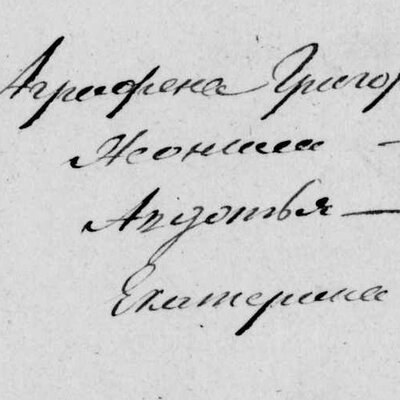 Аграфена Григор
—
Авдотья —
Екатерина